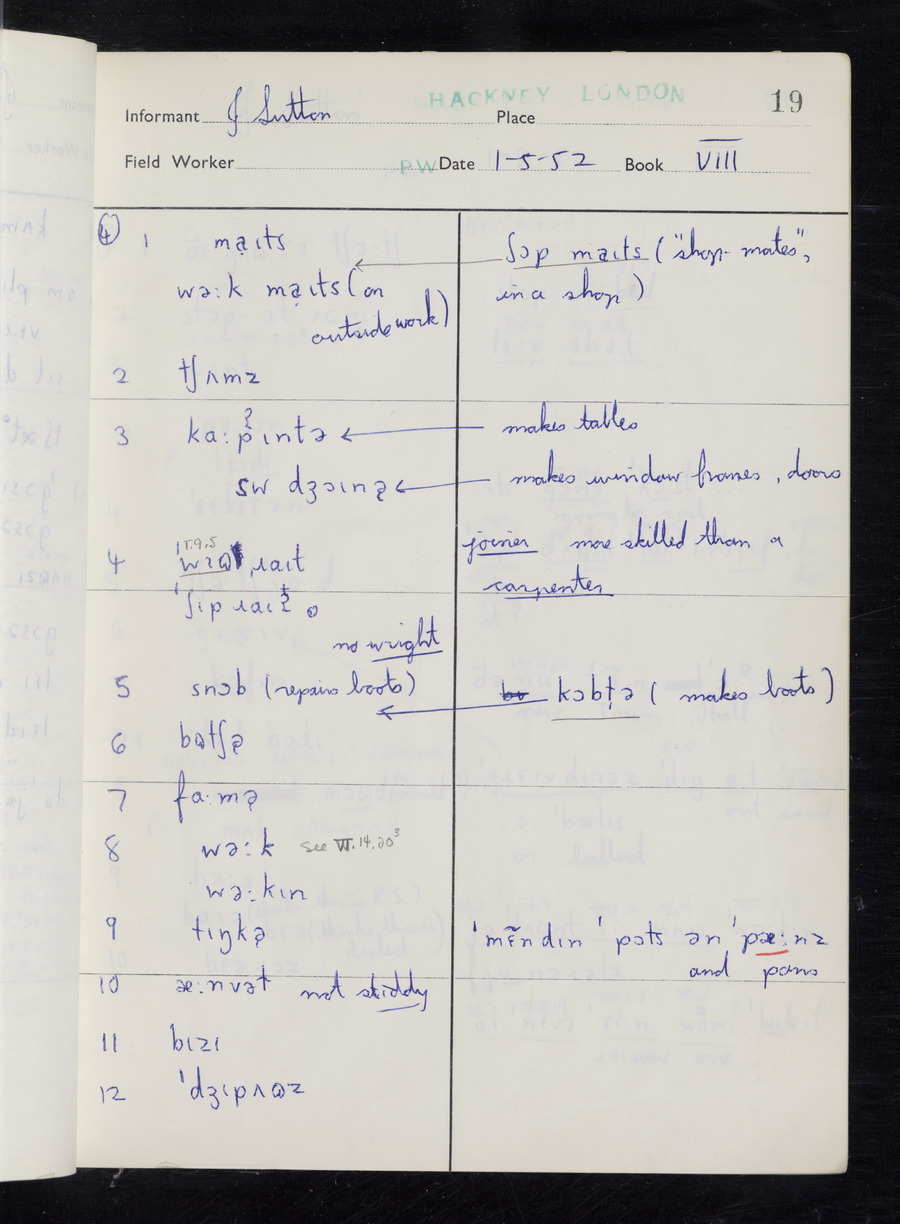 HACKNEY LONDON
19
Informant J Sutton Place
Field Worker P.W. Date 1-5-52 Book VIII
④ 1 ma̤ɪts
ʃɔp ma̤ɪts ("shop-mates",
in a shop)
wə:k ma̤ɪts (on
outside work)
2 tʃʌmz
3 ka:pʔɪntə
makes tables
sw dʒɔɪnə̤
makes window frames, doors
joiner more skilled than a
carpenter
4 ɹaɪt
ˈʃɪpɹaɪ
no wright
5 snɔb (repairs boots)
kɔbtə (makes boots)
6 bɷtʃə̤
7 fa:mə̤
8 wə:k see VII.14.20³
wə:kɪn
9 tɪŋkə̤
ˈmɛ̃ndɪn ˈpɔts ən ˈpæ:nz
and pans
10 æ:nvət not stiddy
11 bɪzɪ
12 ˈdʒɪpʌɷz